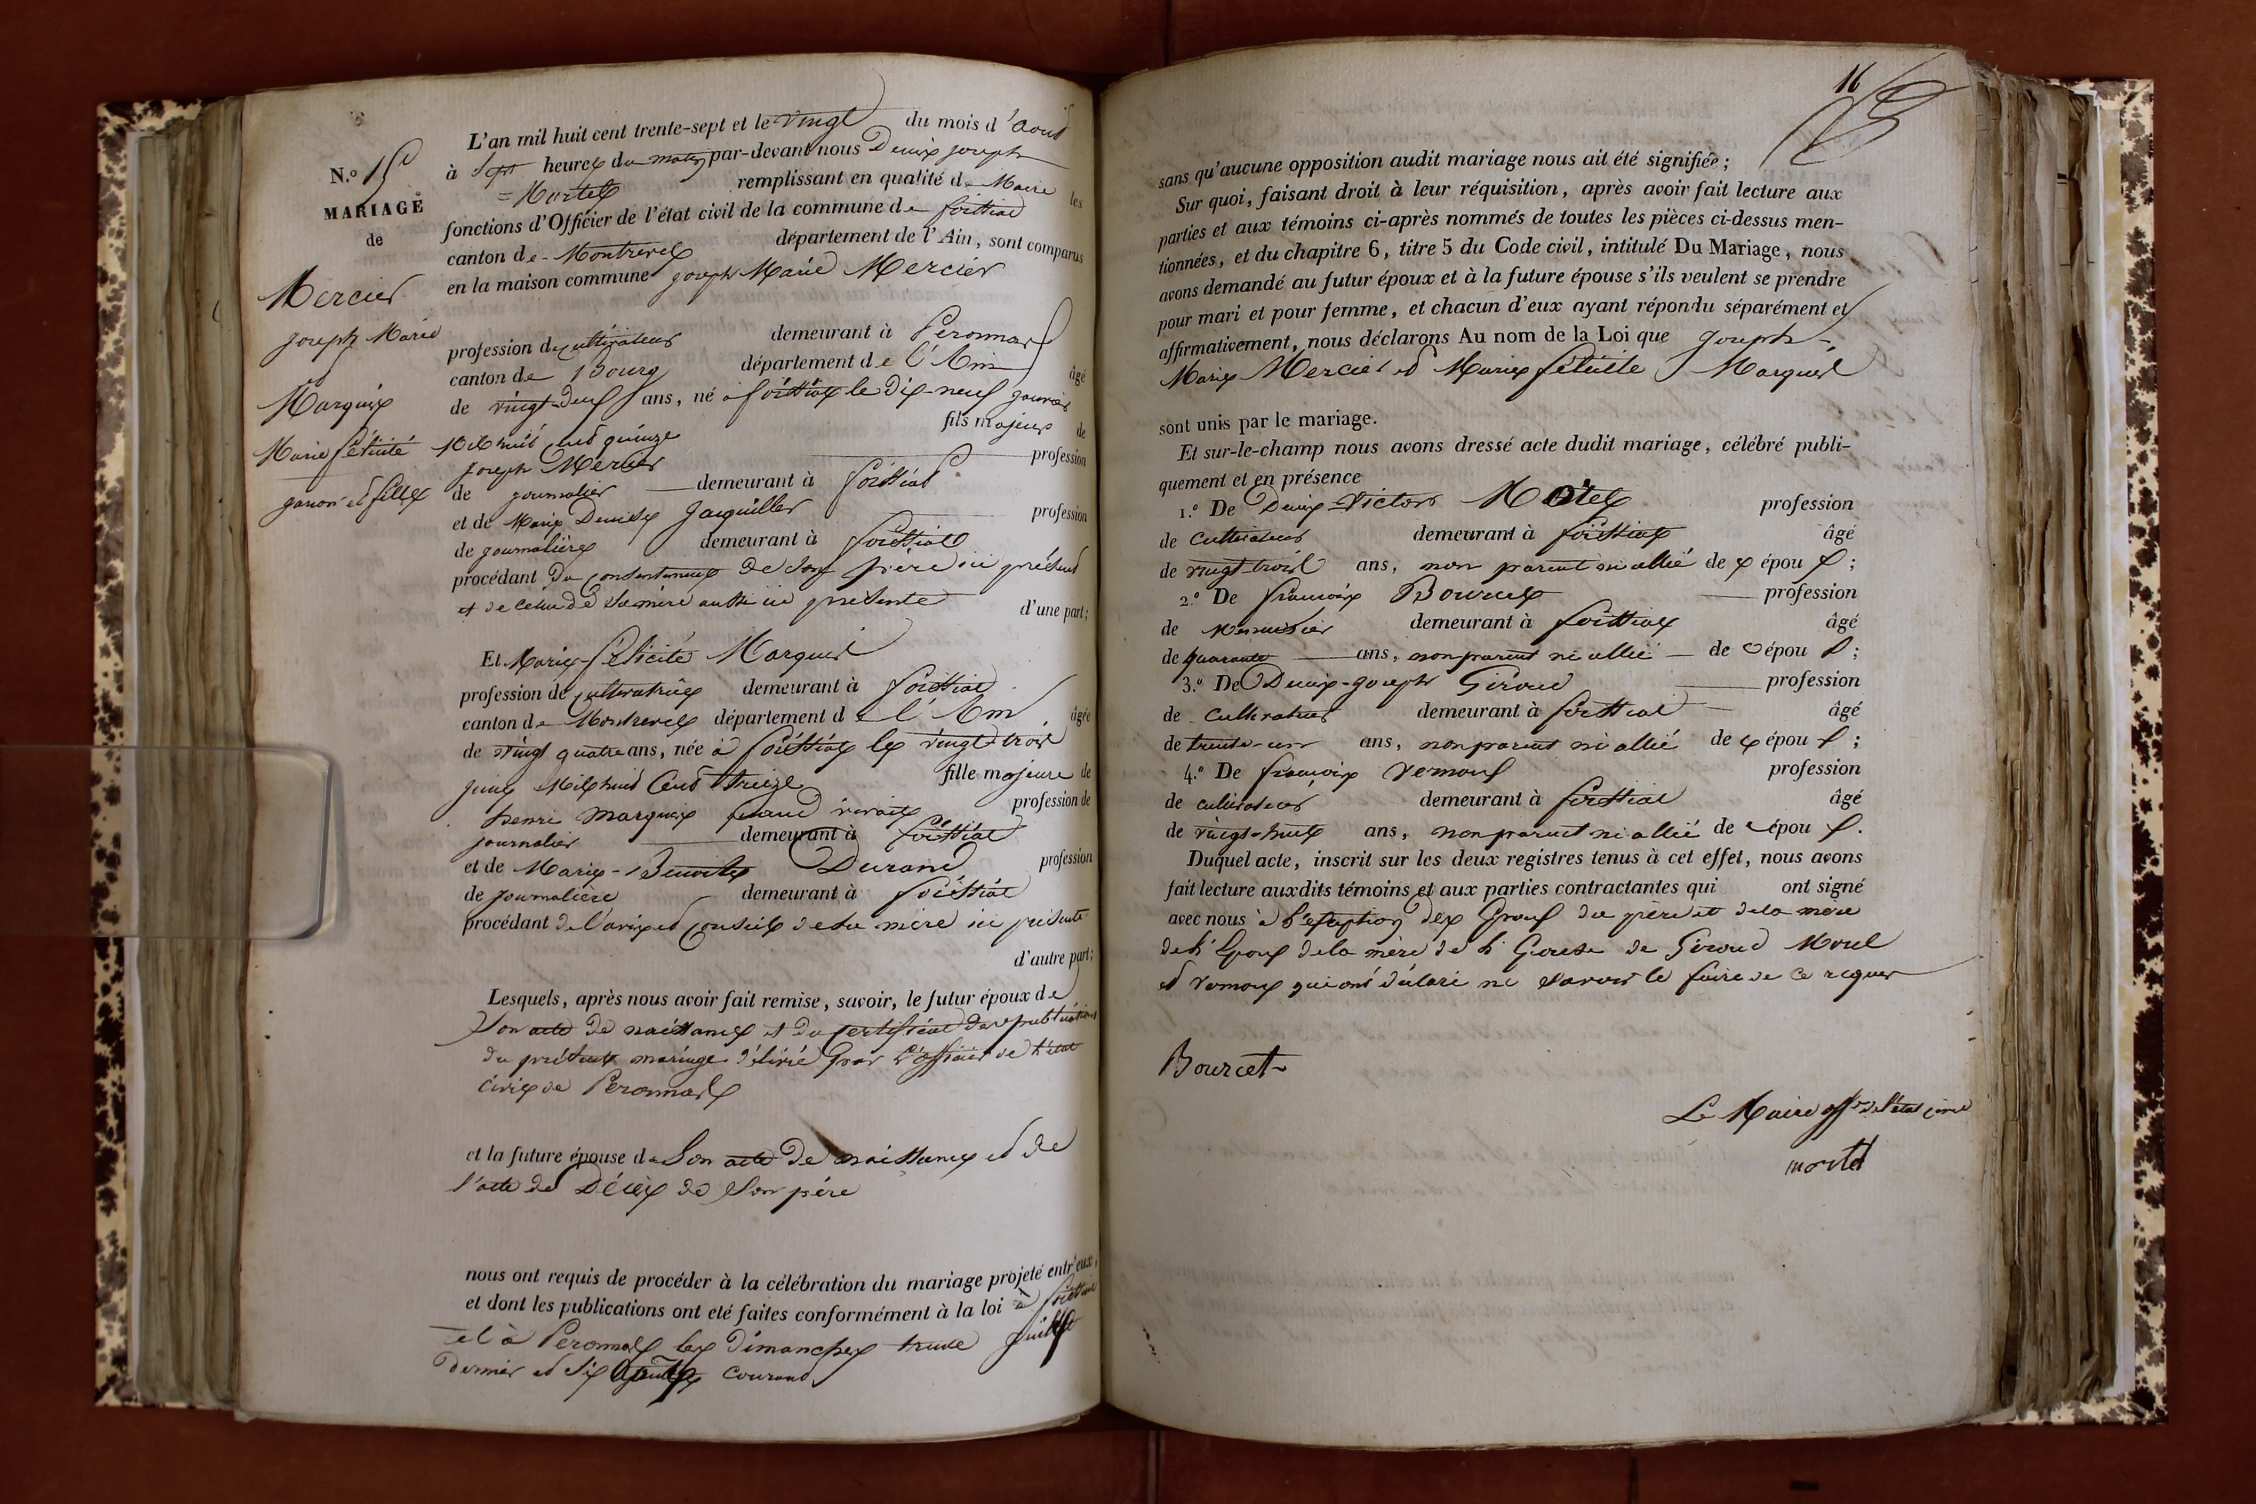 N.º 15
MARIAGE
de
Mercier
Joseph Marie
Marquis
Marie félicité
garcon et fille
L'an mil huit cent trente-sept et le vingt du mois d'aout
à sept heures du matin par-devant nous Denis Joseph
= Mortel remplissant en qualité de Maire les
fonctions d'Officier de l'état civil de la commune de foissiat
canton de Montrevel département de l'Ain, sont comparus
en la maison commune Joseph Marie Mercier
profession de cultivateur demeurant à Peronnas
canton de Bourg département de l'Ain âgé
de vingt-deux ans, né à foissiat le dix-neuf janvier
Mil huit cent quinze fils majeur de
Joseph Mercier profession
de journalier demeurant à foissiat
et de Marie Denise Jacquiller profession
de journalière demeurant à foissiat
procédant du consentement de son père ici présent
et de celui de sa mère aussi ici présente d'une part;
Et Marie-félicité Marquis
profession de cultivatrice demeurant à foissiat
canton de Montrevel département de l'Ain âgée
de vingt quatre ans, née à foissiat le vingt-trois
juin Mil huit Cent treize fille majeure de
henri Marquis quand vivait profession de
journalier demeurant à foissiat
et de Marie-Benoite Durand profession
de journalière demeurant à foissiat
procédant de l'avis et Conseil de sa mère ici présente
d'autre part;
Lesquels, après nous avoir fait remise, savoir, le futur époux de
Son acte de naissance et du certificat de publications
du présent mariage délivré par l'officier de l'état
civil de Peronnas
et la future épouse de Son acte de naissance et de
l'acte de Décès de Son père
nous ont requis de procéder à la célébration du mariage projeté entr'eux,
et dont les publications ont eté faites conformément à la loi à foissiat
et à Peronnas les Dimanches trente juillet
dernier et six courant
16
sans qu'aucune opposition audit mariage nous ait été signifiée;
Sur quoi, faisant droit à leur réquisition, après avoir fait lecture aux
parties et aux témoins ci-après nommés de toutes les pièces ci-dessus men-
tionnées, et du chapitre 6, titre 5 du Code civil, intitulé Du Mariage, nous
avons demandé au futur époux et à la future épouse s'ils veulent se prendre
pour mari et pour femme, et chacun d'eux ayant répondu séparément et
affirmativement, nous déclarons Au nom de la Loi que Joseph-
Marie Mercier et Marie félicité Marquis
sont unis par le mariage.
Et sur-le-champ nous avons dressé acte dudit mariage, célébré publi-
quement et en présence
1.º De Denis-Victor profession
de Cultivateur demeurant à foissiat âgé
de vingt-trois ans, non parent ni allié de x épou x;
2.º De françois Bourcet profession
de Menuisier demeurant à foissiat âgé
de quarante ans, non parent ni allié de épou x;
3.º De Denis-Joseph Giroud profession
de Cultivateur demeurant à foissiat âgé
de trente-un ans, non parent ni allié de x épou x;
4.º De françois Vernoux profession
de cultivateur demeurant à foissiat âgé
de vingt-huit ans, non parent ni allié de épou x.
Duquel acte, inscrit sur les deux registres tenus à cet effet, nous avons
fait lecture auxdits témoins et aux parties contractantes qui ont signé
avec nous à l'exception des Epoux du père et de la mère
de l'Epoux de la mère de l'Epouse de Giroud Morel
et Vernoux qui ont déclaré ne savoir le faire de ce requis
Bourcet
Le Maire off.er de l'état civil
mortel